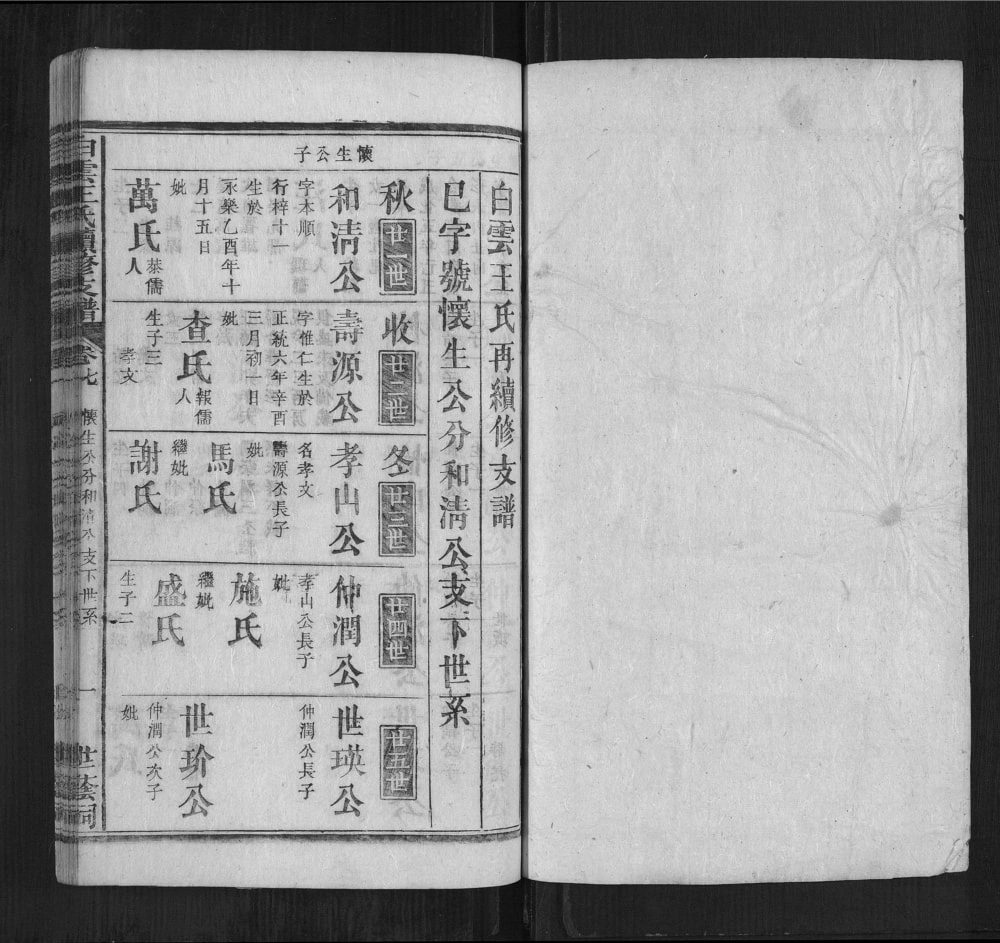 白雲王氏再續修支譜
巳字號懷生公分和淸公支下世系
懷生公子
秋
廿一世
和淸公
字本順
行梓十一
生於
永樂乙酉年十
月十五日
妣
萬氏
恭儒
人
收
廿二世
壽源公
字惟仁生於
正統六年辛酉
三月初一日
妣
查氏
報儒
人
生子三
孝文
冬
廿三世
孝山公
名孝文
壽源公長子
妣
馬氏
繼妣
謝氏
廿四世
仲潤公
孝山公長子
妣
施氏
繼妣
盛氏
生子二
廿五世
世瑛公
仲潤公長子
世玠公
仲潤公次子
妣
白雲王氏續修支譜
卷七
懷生公分和淸公支下世系
一
世蔭祠